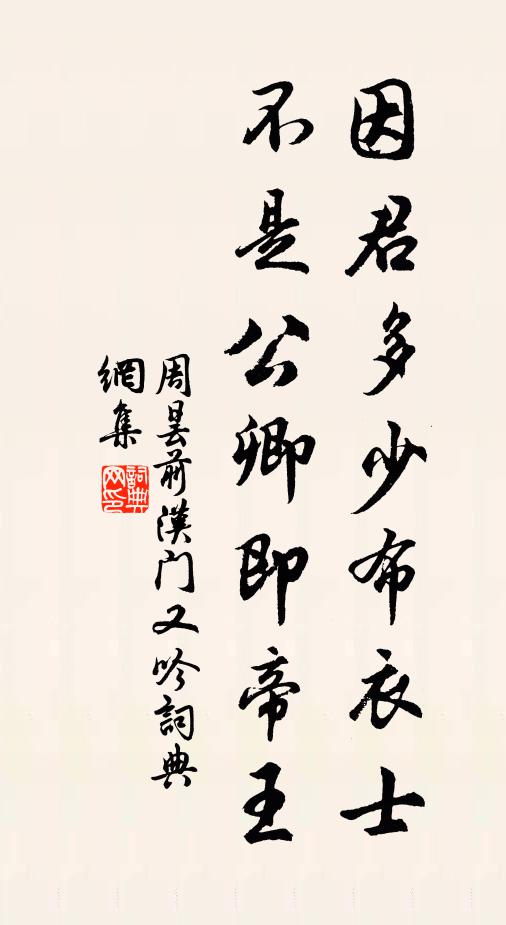 因君多少布衣士
不是公卿即帝王
周昙前漢门又吟詞典
網集
詞典網印